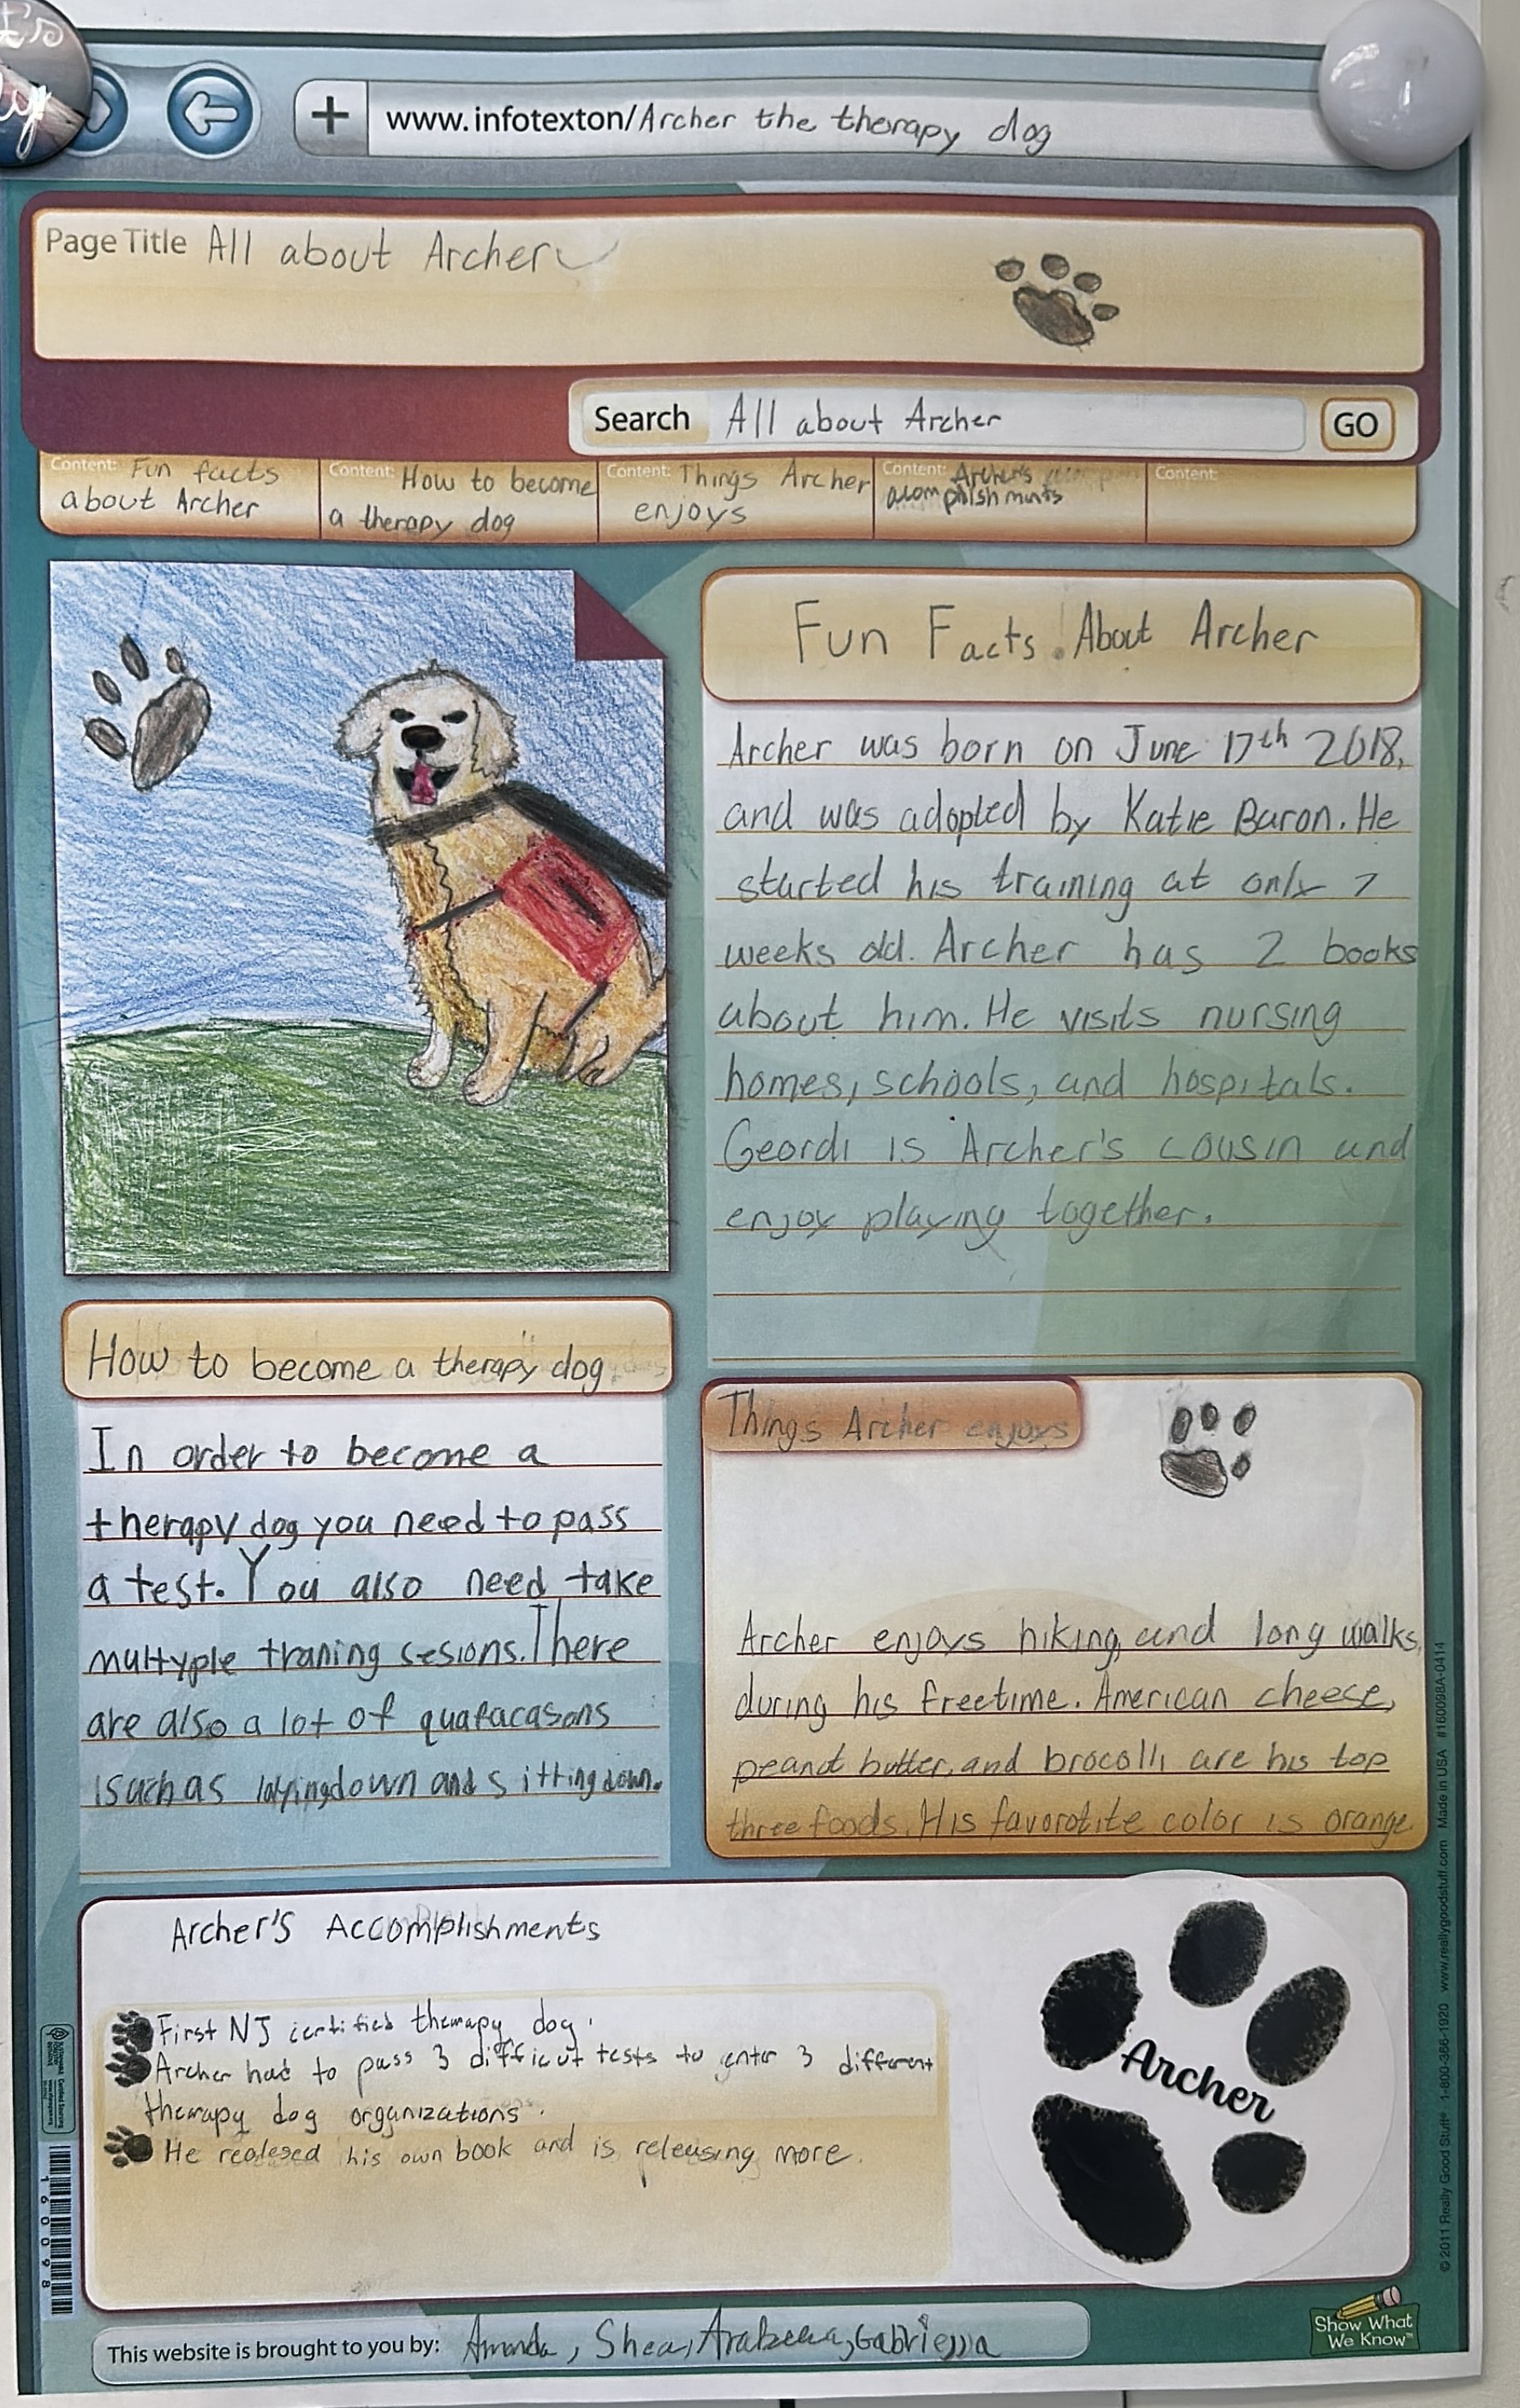 www.infotexton/Archer the therapy dog
Page Title All about Archer
Search All about Archer GO
Content: Fun facts about Archer
Content: How to become a therapy dog
Content: Things Archer enjoys
Content: Archer's acomplishmints
Content:
Fun Facts About Archer
Archer was born on June 17th 2018,
and was adopted by Katie Baron. He
started his training at only 7
weeks old. Archer has 2 books
about him. He visits nursing
homes, schools, and hospitals.
Geordi is Archer's cousin and
enjoy playing together.
How to become a therapy dog
In order to become a
therapy dog you need to pass
a test. You also need take
multyple traning sesions. There
are also a lot of quafacasons
such as layingdown and sitting down.
Things Archer enjoys
Archer enjoys hiking, and long walks,
during his freetime. American cheese,
peanot butter, and brocolli are his top
three foods. His favorotite color is orange
Archer's Accomplishments
First NJ certified therapy dog.
Archer had to pass 3 difficut tests to enter 3 different
therapy dog organizations.
He realesed his own book and is releasing more.
Archer
This website is brought to you by: Amanda, Shea,
Show What
We Know™
© 2011 Really Good Stuff® 1-800-366-1920 www.reallygoodstuff.com Made in USA #160098A-0414
160098